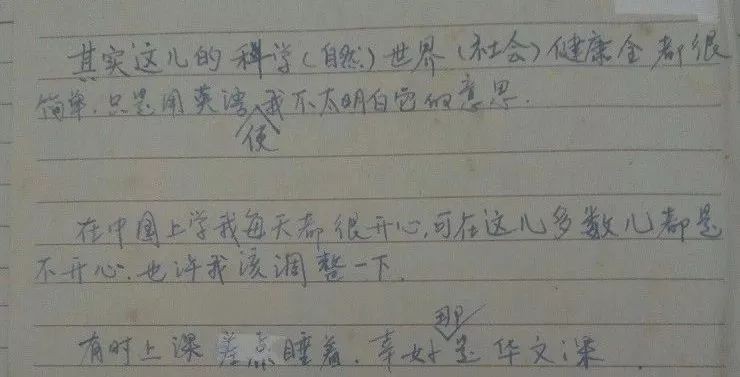 其实这儿的科学(自然)世界(社会)健康全都很
简单.只是用英语使我不太明白它的意思.
在中国上学我每天都很开心,可在这儿多数儿都是
不开心.也许我该调整一下.
有时上课差点睡着.幸好那是华文课